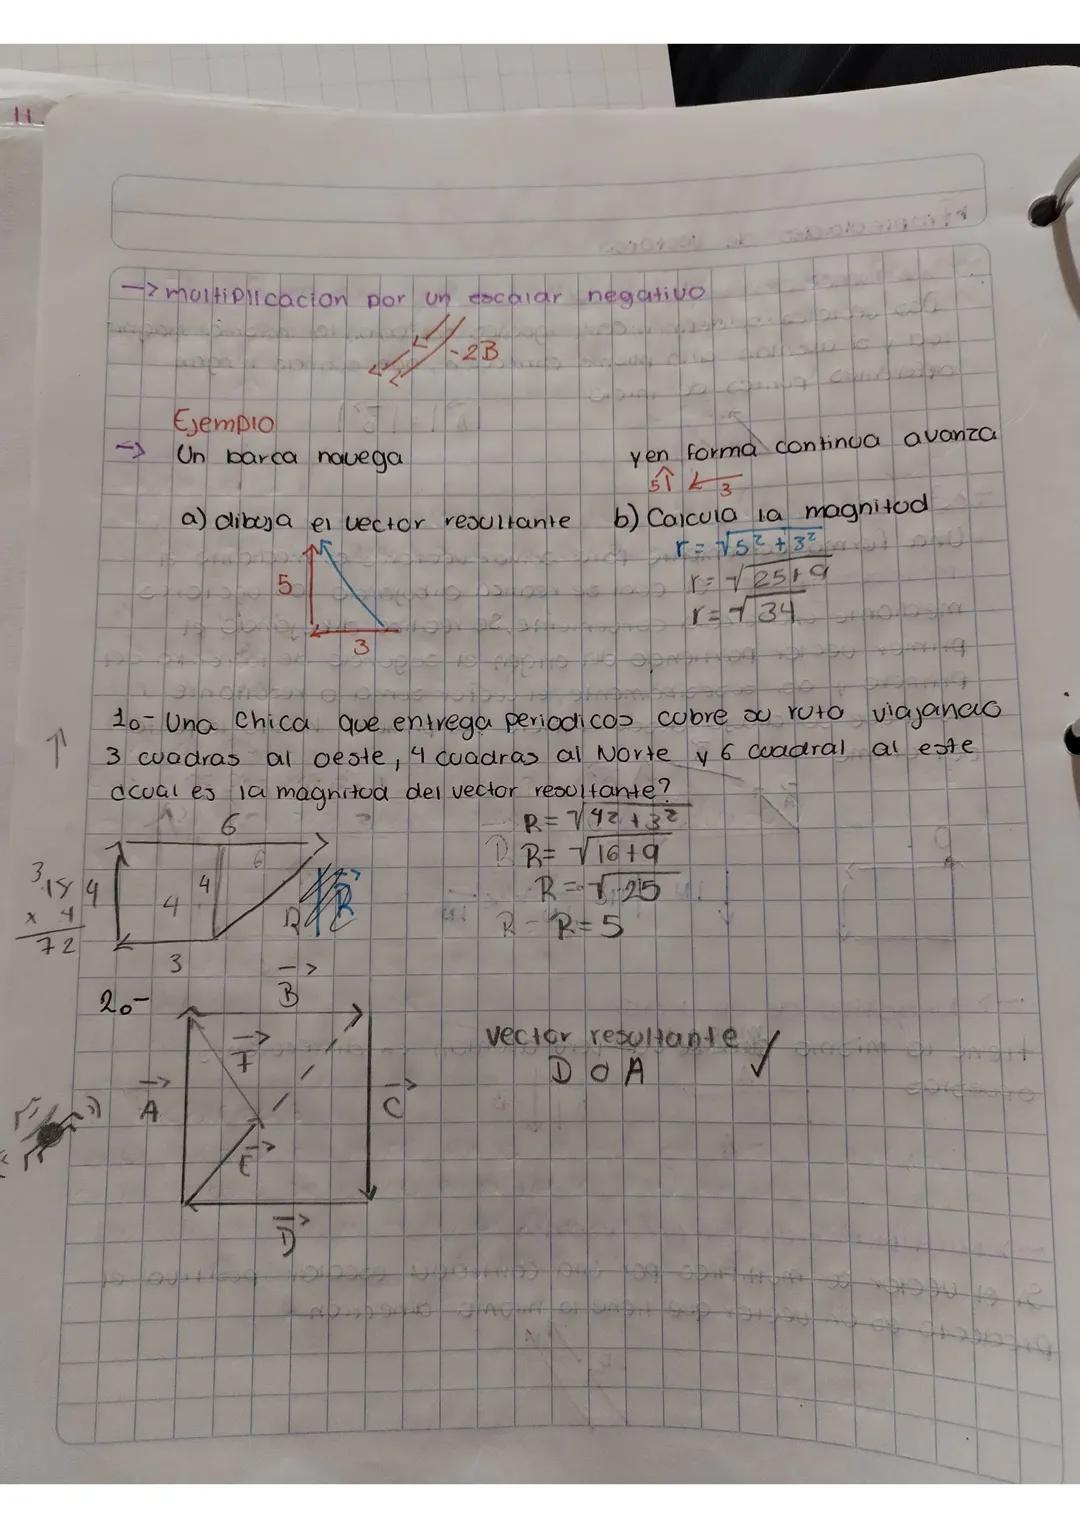 → multiplicacion por un escalar negativo
-2B
Ejemplo
→ Un barca navega yen forma continua avanza
5↑ ← 3
a) dibuja el vector resultante b) Calcula la magnitud
r = √5² + 3²
r = √25+9
r = √34
5
3
1o- Una chica que entrega periodicos cubre su ruta viajando
3 cuadras al oeste, 4 cuadras al Norte y 6 cuadral al este
¿cual es la magnitud del vector resultante?
R = √4² + 3²
R = √16+9
R = √25
R = 5
6
6
4
4
4
3
R
3
18
x 4
72
2o-
B
F
A
C
E
D
vector resultante ✓
D o A